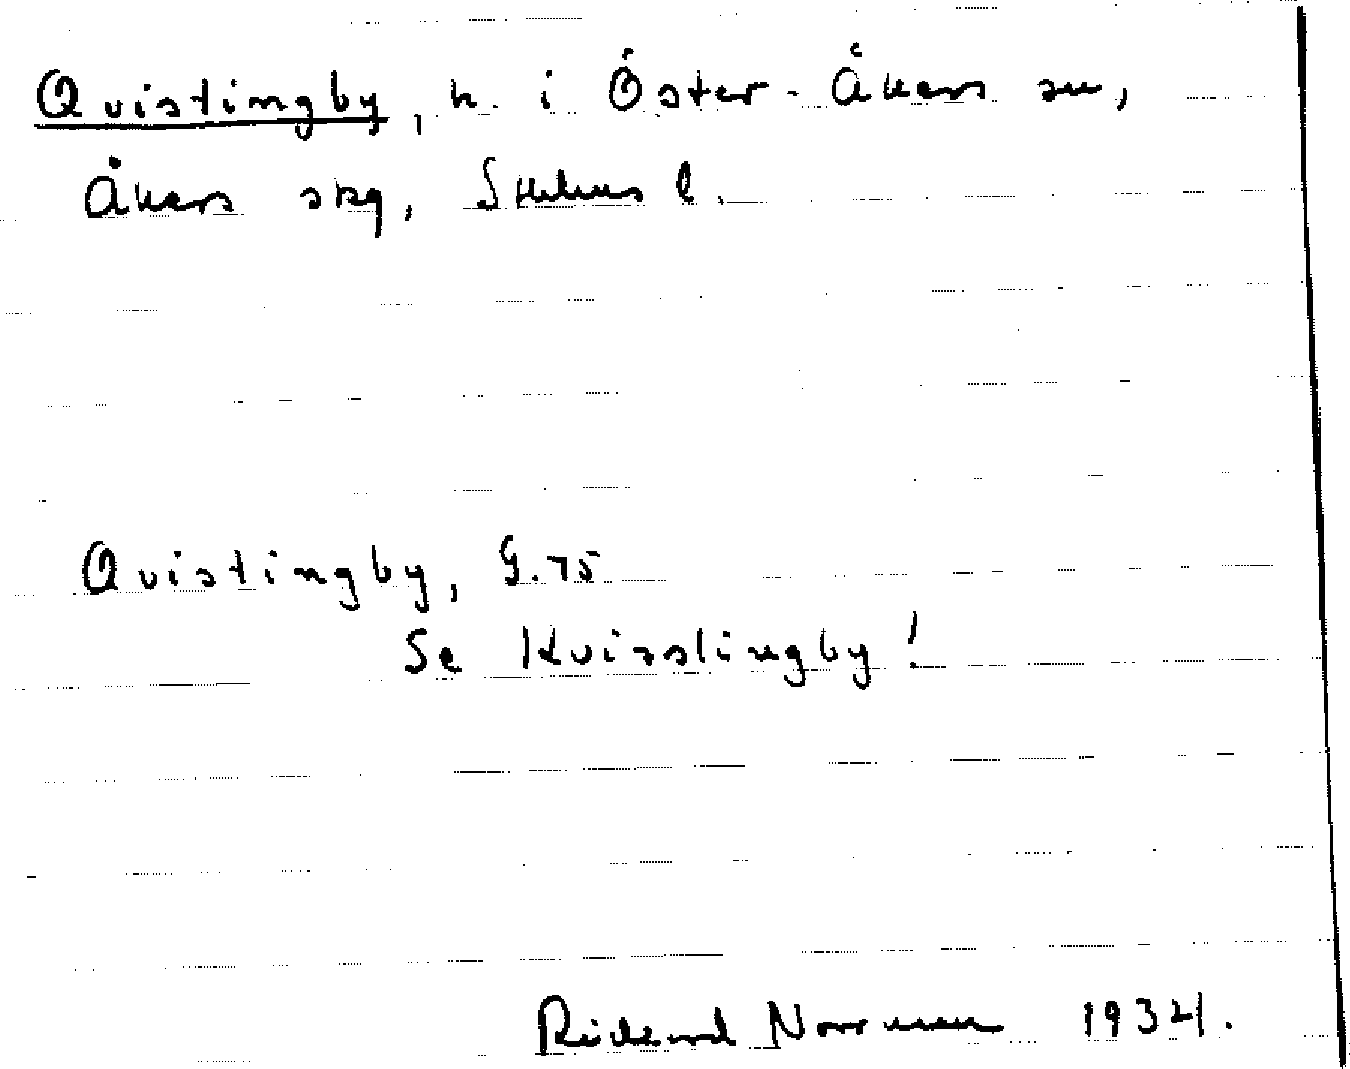 Qvistingby, h. i Öster-Åkers sn,
Åkers skg, Sthlms l.
Qvistingby, G. 75
Se Kvisslingby!
Rickard Norrman 1934.